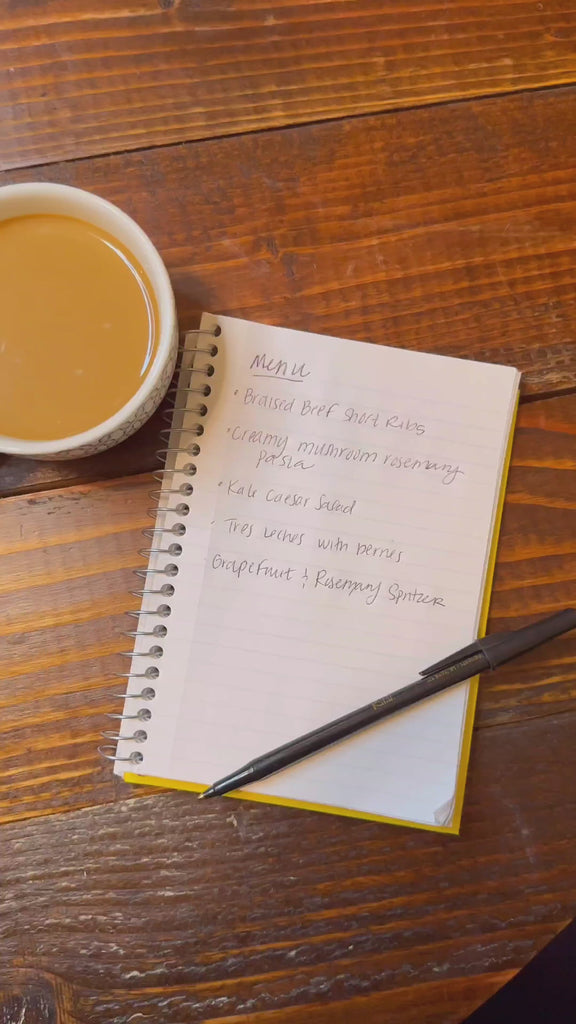 Menu
• Braised Beef Short Ribs
• Creamy mushroom rosemary
pasta
• Kale Caesar Salad
• Tres leches with berries
Grapefruit & Rosemary Spritzer